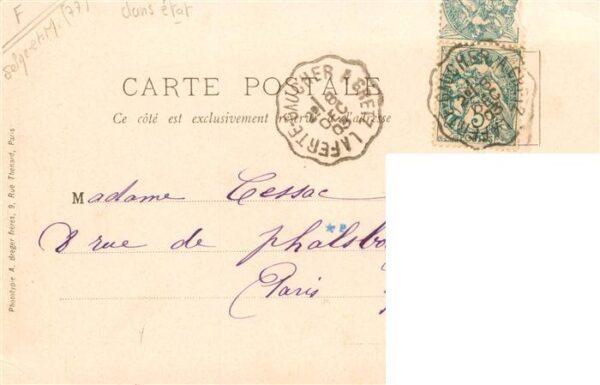 F
Seine-et-M. (77)
dans état
CARTE POSTALE
Ce côté est exclusivement réservé à l'adresse
LAFERTE-GAUCHER A GRETZ
Madame Cessac
8 rue de phalsbo
Paris
Phototypie A. Breger frères, 9, Rue Thénard, Paris